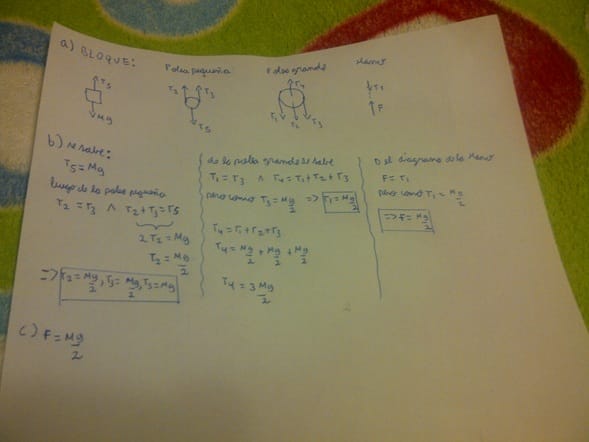 a) BLOQUE:
Polea pequeña
Polea grande
Mano
T5
Mg
T2 T3
T5
T4
T1 T2 T3
T1
F
b) se sabe:
T5 = Mg
luego de la polea pequeña
T2 = T3 ∧ T2 + T3 = T5
2T2 = Mg
T2 = Mg/2
=> T2 = Mg/2, T3 = Mg/2, T5 = Mg
de la polea grande se sabe
T1 = T3 ∧ T4 = T1 + T2 + T3
pero como T3 = Mg/2 => T1 = Mg/2
T4 = T1 + T2 + T3
T4 = Mg/2 + Mg/2 + Mg/2
T4 = 3Mg/2
Del diagrama de la Mano
F = T1
pero como T1 = Mg/2
=> F = Mg/2
c) F = Mg/2